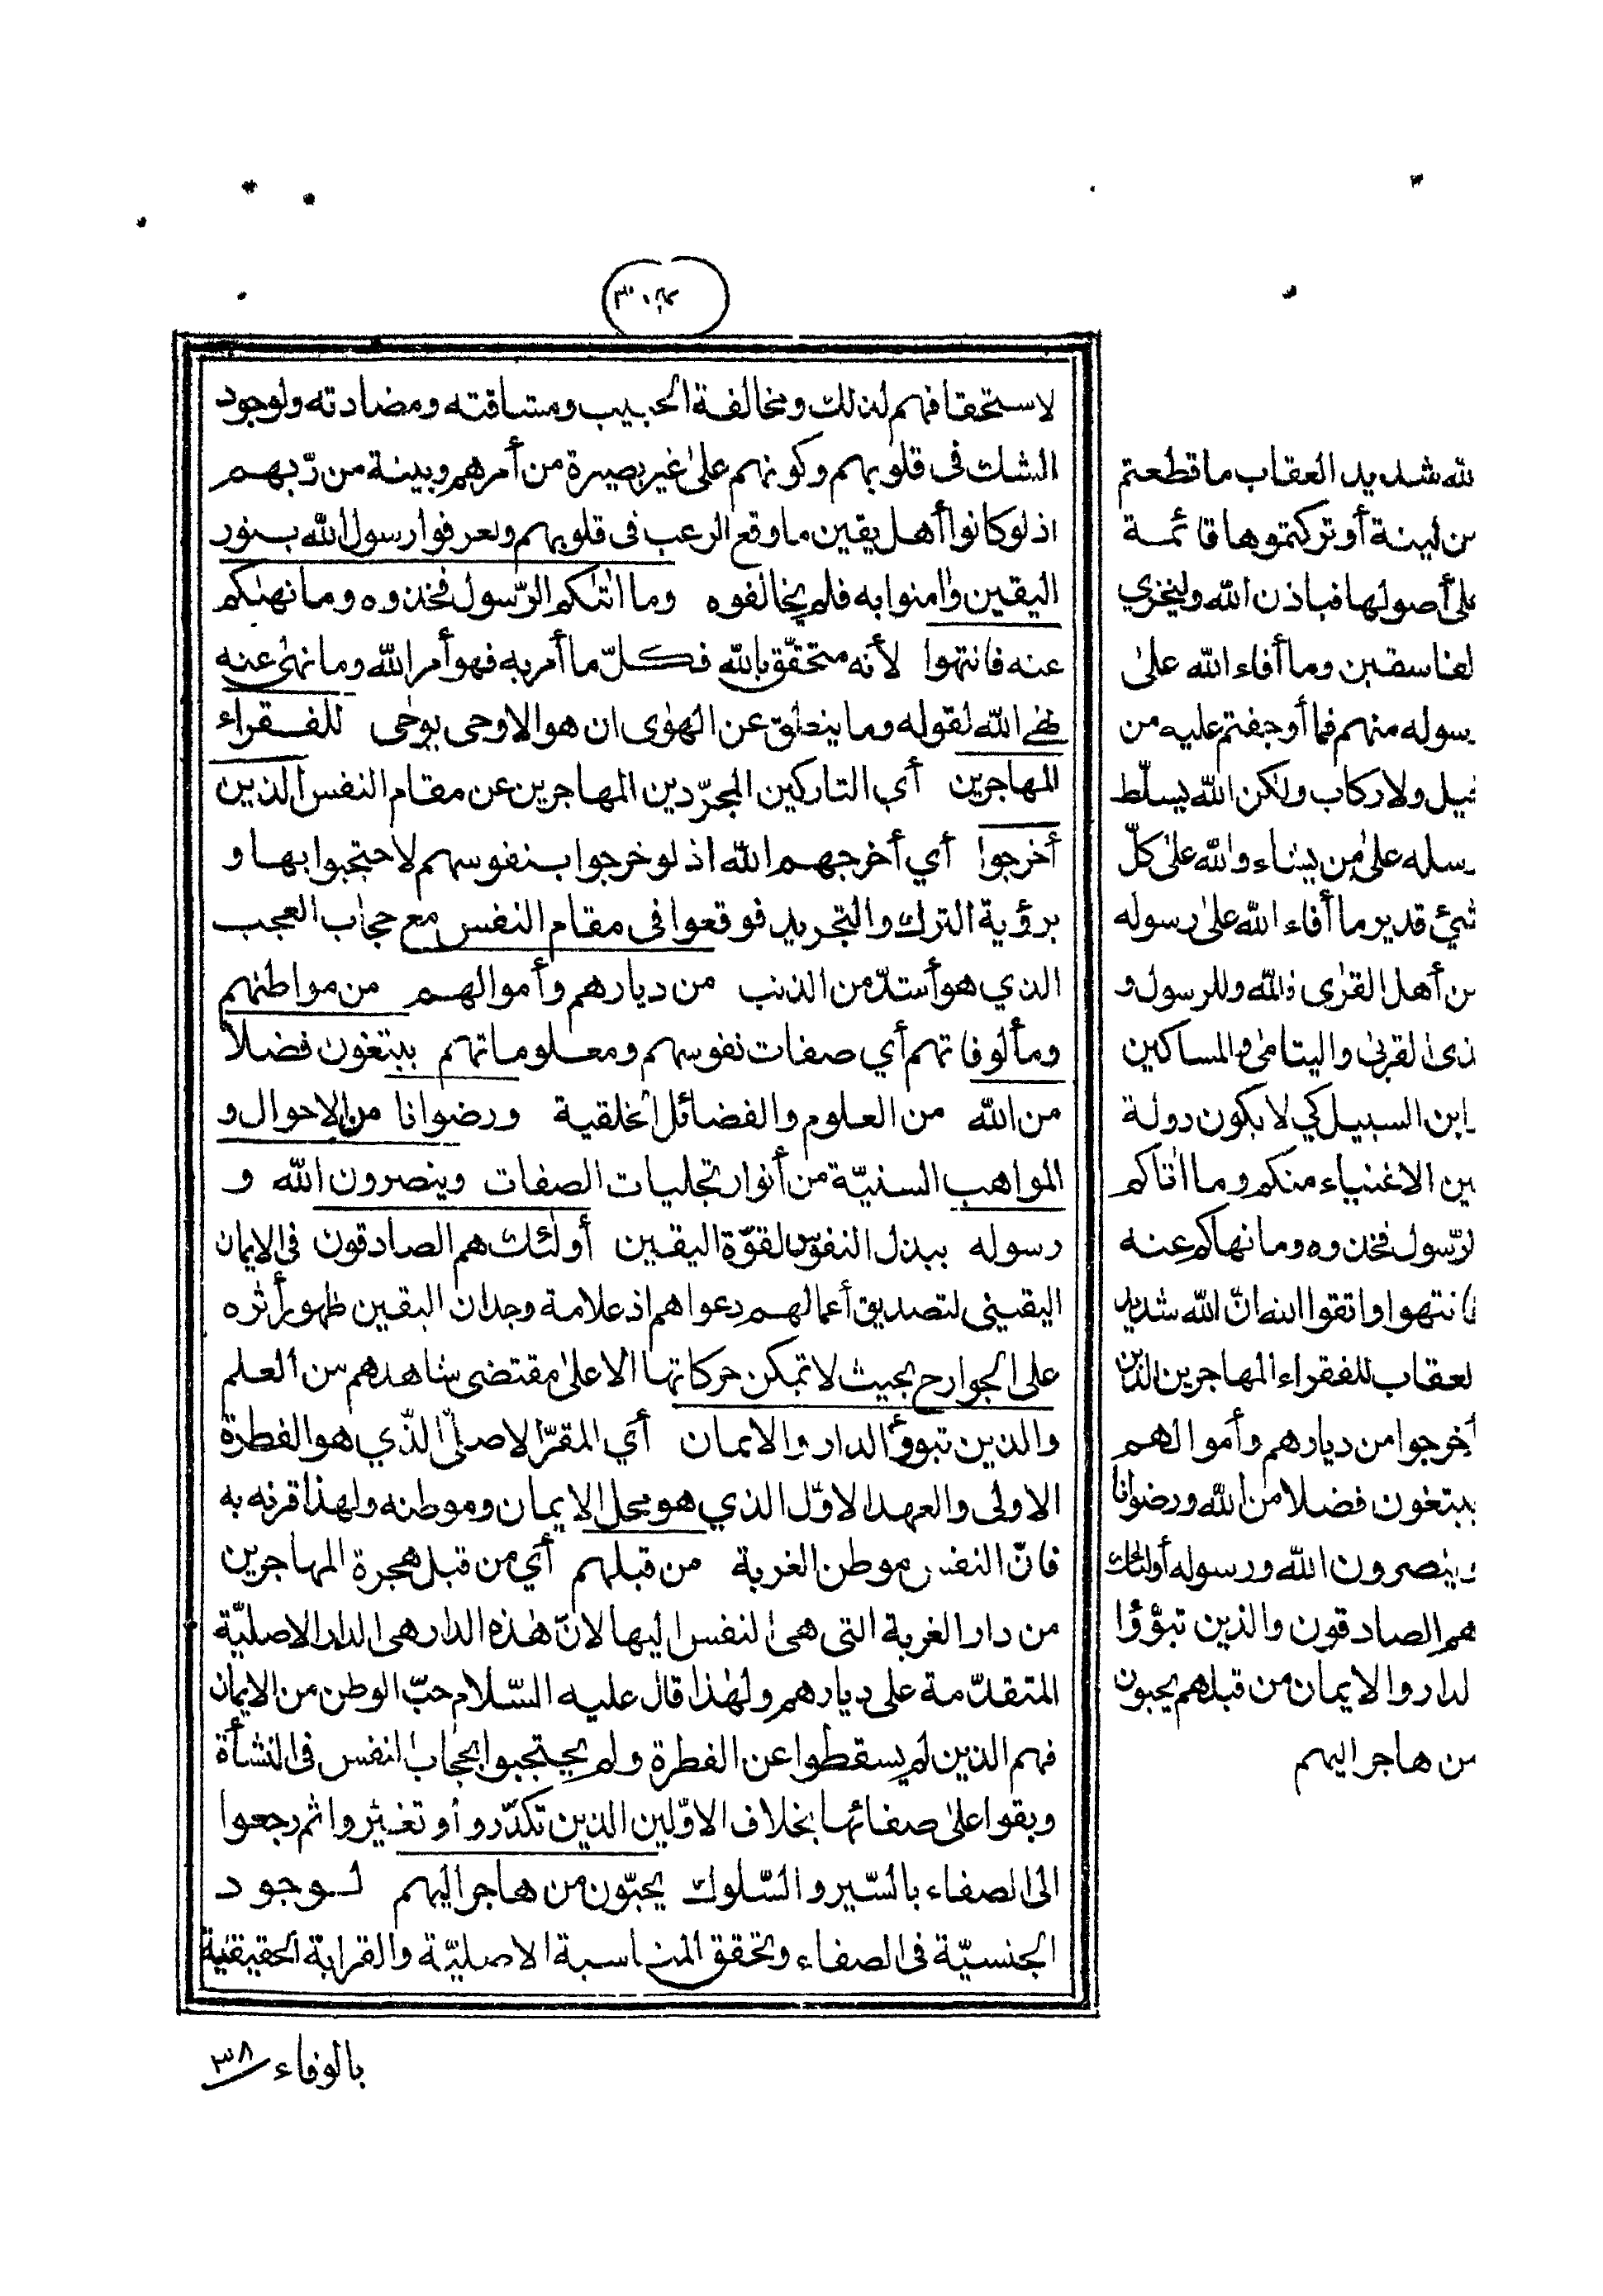 لاستحقاقهم لذلك ومخالفة الحبيب ومشاقته ومضادته ولوجود
الشك فى قلوبهم وكونهم على غير بصيرة من أمرهم وبينة من ربّهم
اذ لو كانوا أهل يقين ما وقع الرعب فى قلوبهم ولعرفوا رسول الله بنور
اليقين وامنوا به فلم يخالفوه وما اتٰكم الرّسول فخذوه وما نهٰكم
عنه فانتهوا لأنه متحقّق بالله فكلّ ما أمر به فهو أمر الله وما نهى عنه
نهى الله لقوله وما ينطق عن الهوى ان هو الا وحى يوحى للفقراء
المهاجرين أي التاركين المجرّدين المهاجرين عن مقام النفس الذين
أخرجوا أي أخرجهم الله اذ لو خرجوا بنفوسهم لاحتجبوا بها و
برؤية الترك والتجريد فوقعوا فى مقام النفس مع حجاب العجب
الذي هو أشدّ من الذنب من ديارهم وأموالهم من مواطنهم
ومألوفاتهم أي صفات نفوسهم ومعلوماتهم يبتغون فضلاً
من الله من العلوم والفضائل الخلقية ورضوانا من الاحوال و
المواهب السنيّة من أنوار تجليات الصفات وينصرون الله و
رسوله ببذل النفوس لقوّة اليقين أولئك هم الصادقون فى الايمان
اليقينى لتصديق أعمالهم دعواهم اذ علامة وجدان اليقين ظهور أثره
على الجوارح بحيث لا تمكن حركاتها الا على مقتضى شاهدهم من العلم
والذين تبوؤ الدار والايمان أي المقرّ الاصلىّ الّذي هو الفطرة
الاولى والعهد الاوّل الذي هو محل الايمان وموطنه ولهذا قرنه به
فانّ النفس موطن الغربة من قبلهم أي من قبل هجرة المهاجرين
من دار الغربة التى هى النفس اليها لانّ هذه الدار هى الدار الاصليّة
المتقدّمة على ديارهم ولهذا قال عليه السّلام حبّ الوطن من الايمان
فهم الذين لم يسقطوا عن الفطرة ولم يحتجبوا بحجاب النفس فى النشأة
وبقوا على صفائها بخلاف الاوّلين الذين تكدّروا وتغيّروا ثم رجعوا
الى الصفاء بالسّير والسّلوك يحبّون من هاجر اليهم لوجود
الجنسيّة فى الصفاء وتحقق المناسبة الاصليّة والقرابة الحقيقية
بالوفاء ٣٨
لله شديد العقاب ما قطعتم
من لينة أو تركتموها قائمة
على أصولها فباذن الله وليخزي
لفاسقين وما أفاء الله على
رسوله منهم فما أوجفتم عليه من
خيل ولا ركاب ولكن الله يسلّط
رسله على من يشاء والله على كلّ
شئ قدير ما أفاء الله على رسوله
من أهل القرى فلله وللرسول و
لذى القربى واليتامى والمساكين
وابن السبيل كي لا يكون دولة
بين الاغنياء منكم وما اٰتاكم
لرّسول فخذوه وما نهاكم عنه
فانتهوا واتقوا الله انّ الله شديد
لعقاب للفقراء المهاجرين الذين
أخرجوا من ديارهم وأموالهم
يبتغون فضلا من الله ورضوانا
وينصرون الله ورسوله أولئك
هم الصادقون والذين تبوّؤا
لدار والايمان من قبلهم يحبون
من هاجر اليهم